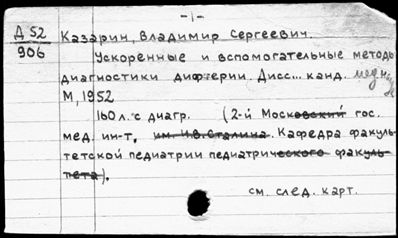 -1-
Д 52
906
Казарин, Владимир Сергеевич.
Ускоренные и вспомогательные методы
диагностики дифтерии. Дисс... канд. мед. наук
М, 1952
160 л. с диагр. (2-й Московский гос.
мед. ин-т, им. И.В. Сталина. Кафедра факуль-
тетской педиатрии педиатрического факуль-
тета).
см. след. карт.